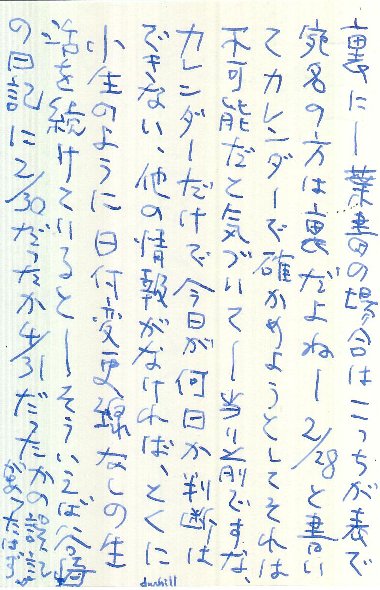 裏に―葉書の場合はこっちが表で
宛名の方は裏だよね― 2/28と書い
てカレンダーで確かめようとしてそれは
不可能だと気づいて―当り前ですな、
カレンダーだけで今日が何日か判断は
できない、他の情報がなければ、とくに
小生のように日付変更線なしの生
活を続けていると―そういえば谷崎
の日記に2/30だったか4/31だったかの誤記
があったはず
dunhill